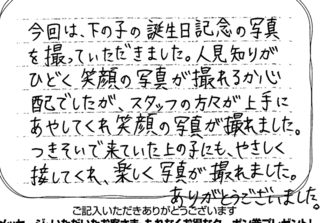 今回は、下の子の誕生日記念の写真
を撮っていただきました。人見知りが
ひどく笑顔の写真が撮れるか心
配でしたが、スタッフの方々が上手に
あやしてくれ笑顔の写真が撮れました。
つきそいで来ていた上の子にも、やさしく
接してくれ、楽しく写真が撮れました。
ありがとうございました。
ご記入いただきありがとうございます